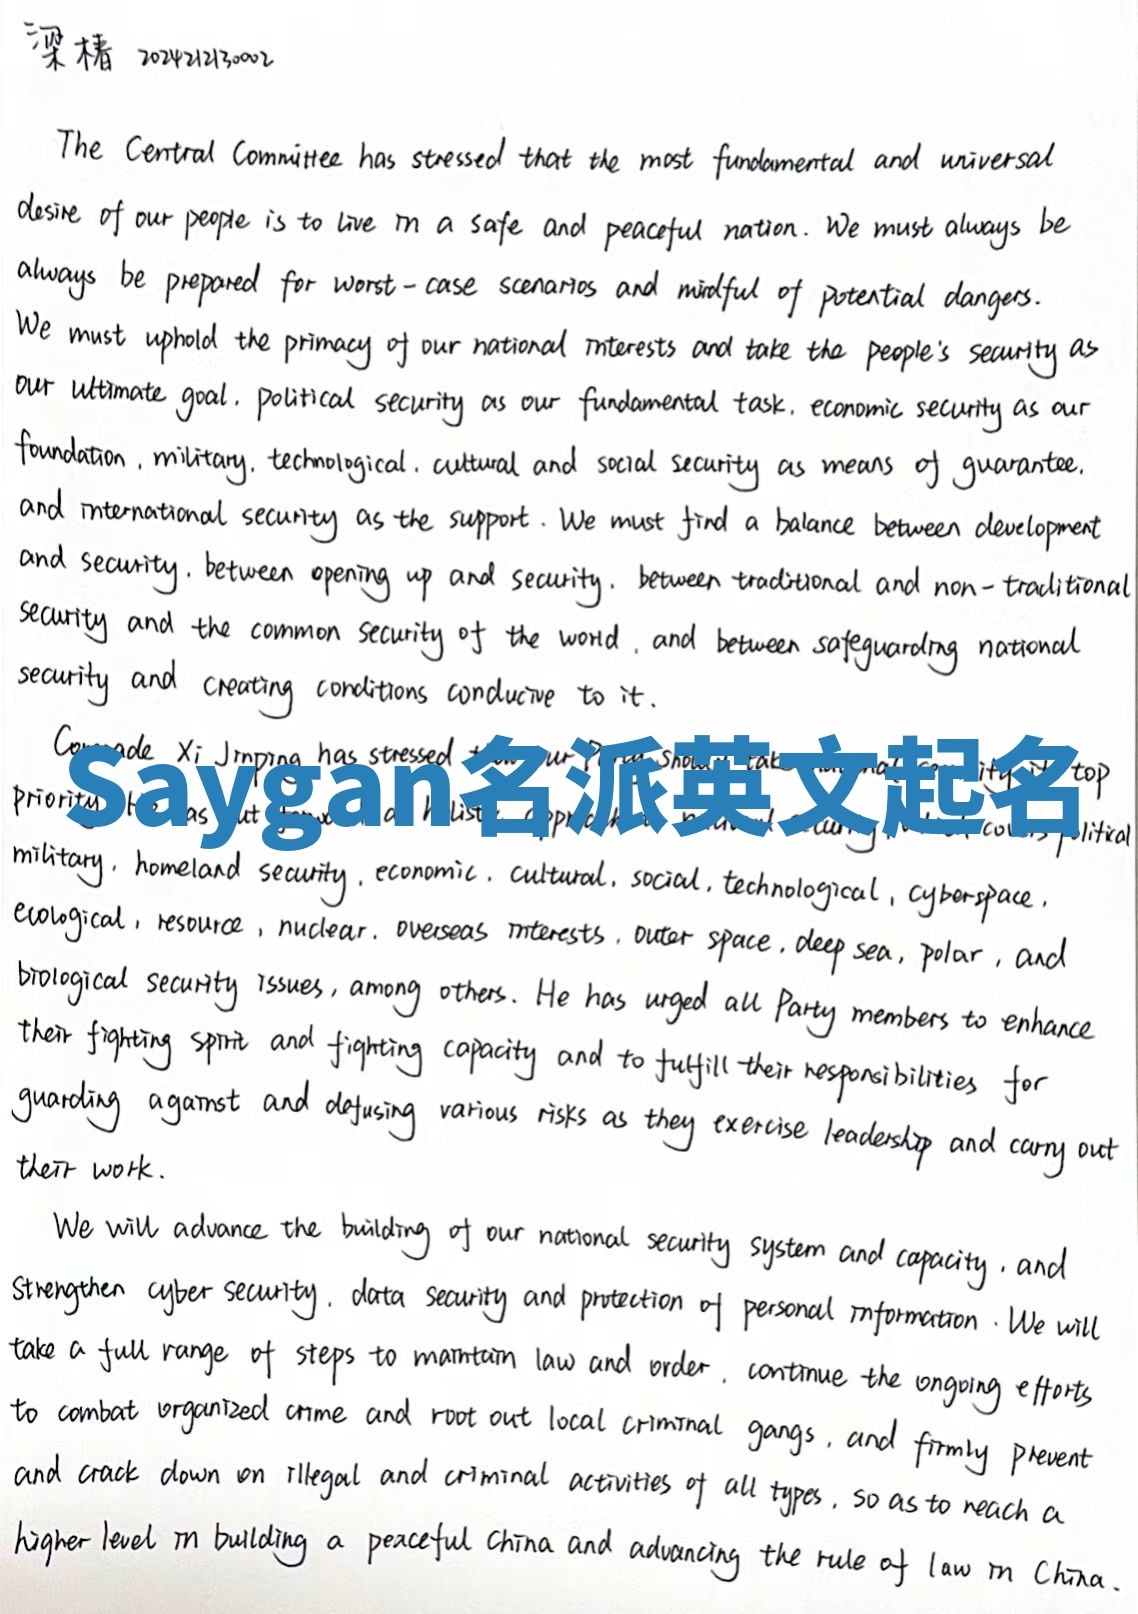 梁椿 2024212130002
The Central Committee has stressed that the most fundamental and universal
desire of our people is to live in a safe and peaceful nation. We must always be
always be prepared for worst-case scenarios and mindful of potential dangers.
We must uphold the primacy of our national interests and take the people's security as
our ultimate goal, political security as our fundamental task, economic security as our
foundation, military, technological, cultural and social security as means of guarantee,
and international security as the support. We must find a balance between development
and security, between opening up and security, between traditional and non-traditional
security and the common security of the world, and between safeguarding national
security and creating conditions conducive to it.
Comrade Xi Jinping has stressed that our Party should take national security its top
Saygan名派英文起名
priority. He has put forward a holistic approach to national security, which covers political
military, homeland security, economic, cultural, social, technological, cyberspace,
ecological, resource, nuclear, overseas interests, outer space, deep sea, polar, and
biological security issues, among others. He has urged all Party members to enhance
their fighting spirit and fighting capacity and to fulfill their responsibilities for
guarding against and defusing various risks as they exercise leadership and carry out
their work.
We will advance the building of our national security system and capacity, and
strengthen cyber security, data security and protection of personal information. We will
take a full range of steps to maintain law and order, continue the ongoing efforts
to combat organized crime and root out local criminal gangs, and firmly prevent
and crack down on illegal and criminal activities of all types, so as to reach a
higher level in building a peaceful China and advancing the rule of law in China.